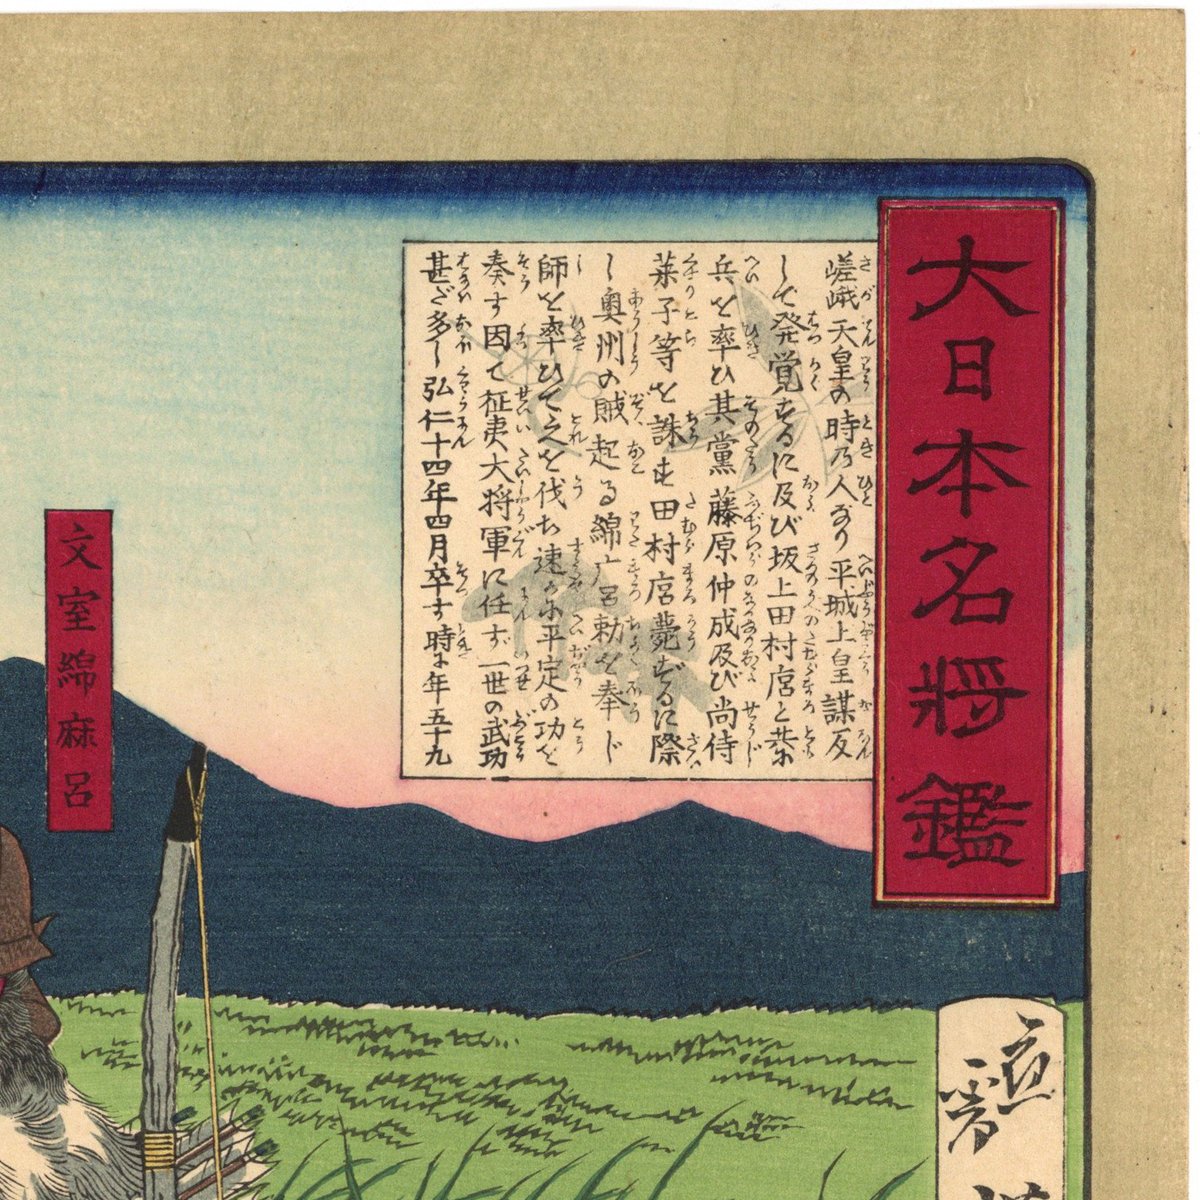 大日本名将鑑
嵯峨天皇の時乃人なり平城上皇謀反
して発覚するに及び坂上田村麿と共に
兵を率ひ其黨藤原仲成及び尚侍
薬子等を誅す田村麿薨ずるに際
し奥州の賊起る綿麻呂勅を奉じ
師を率ひて之を伐ち速かに平定の功を
奏す因て征夷大将軍に任ず一世の武功
甚だ多し弘仁十四年四月卒す時に年五十九
文室綿麻呂
應